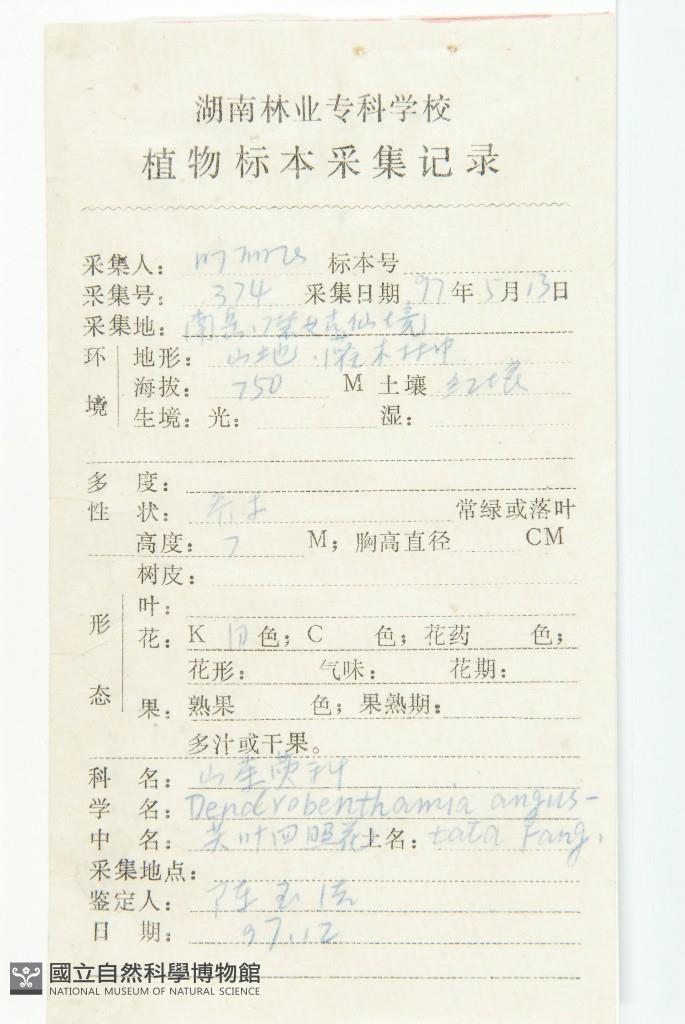 湖南林业专科学校
植物标本采集记录
采集人： 标本号
采集号： 374 采集日期 97年5月13日
采集地： 南岳、 仙境
环境 地形： 山地、灌木林中
海拔： 750 M 土壤 红壤
生境：光： 湿：
多 度：
性 状： 乔木 常绿或落叶
高度： 7 M；胸高直径 CM
树皮：
形态 叶：
花：K 白色；C 色；花药 色；
花形： 气味： 花期：
果：熟果 色；果熟期：
多汁或干果。
科 名： 山茱萸科
学 名： Dendrobenthamia angus-
中 名： 尖叶四照花 土名： tata Fang.
采集地点：
鉴定人： 陈
日 期： 97.12
國立自然科學博物館
NATIONAL MUSEUM OF NATURAL SCIENCE